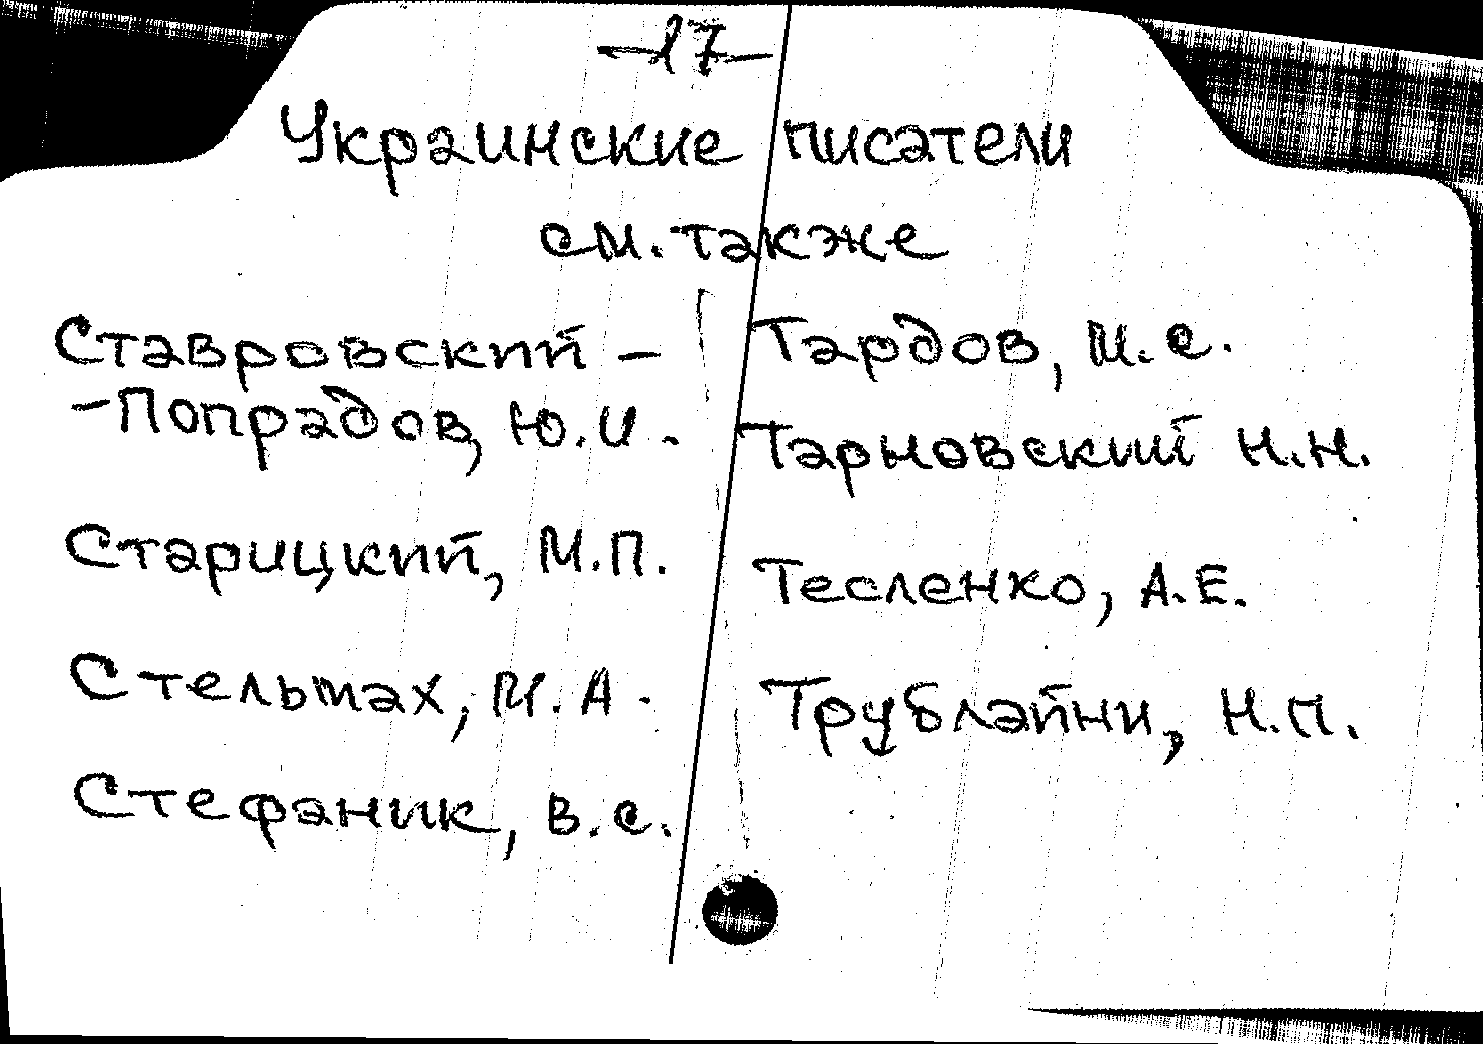 —17—
Украинские писатели
см. также
Ставровский –
– Попрадов, Ю.И.
Старицкий, М.П.
Стельмах, М.А.
Стефаник, В.С.
Тардов, М.С.
Тарновский Н.Н.
Тесленко, А.Е.
Трублайни, Н.П.